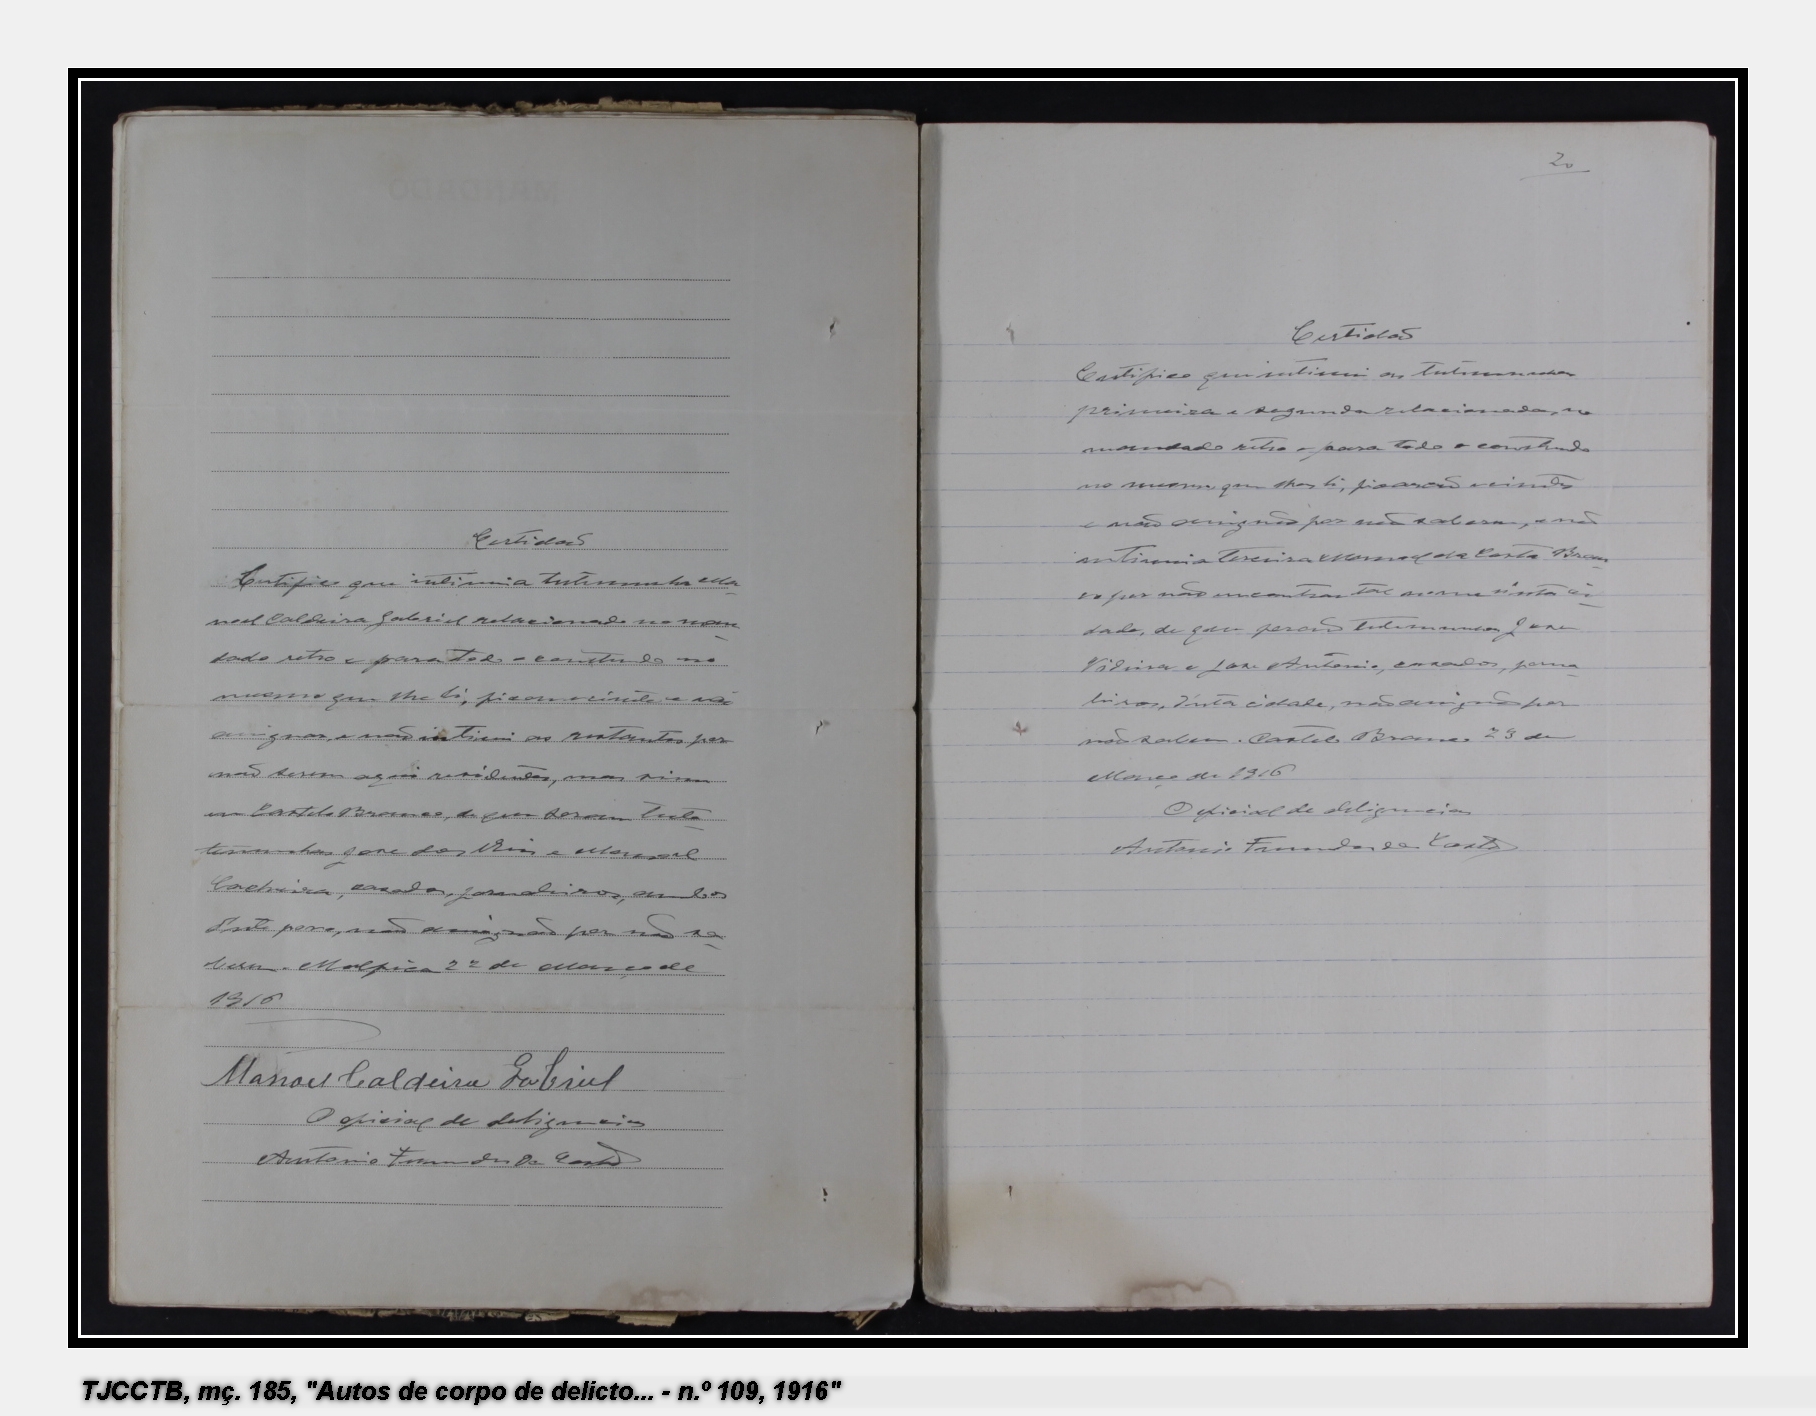 Certidaõ
Certifico que intimei a testemunha Ma-
noel Caldeira Gabriel relacionado no man-
dado retro e para todo o contendo no
mesmo que lhe li, ficou sciente e vae
assignar, e naõ intimei as restantes por
naõ serem aqui residentes, mas sim
em Castelo Branco, de que seram teste
temunhas Jose dos Reis e Manoel
casados, jornaleiros, ambos
deste povo, naõ assignaõ por naõ sa-
berem. Malpica 22 de Março de
1916
Manoel Caldeira Gabriel
O oficial de deligencias
Antonio Fernandes da Costa
20
Certidaõ
Certifico que intimei as testemunhas
primeira e segunda relacionadas, no
mandado retro e para todo o contendo
no mesmo que lhes li, ficaraõ scientes
e naõ assignaõ por naõ saberem, e naõ
intimei a terceira Manoel da Costa Bran-
co por naõ encontrar tal nome nesta ci-
dade, de que seraõ testemunhas Jose
e Jose Antonio, casados, jorna-
leiros, desta cidade, naõ assignaõ por
naõ saberem. Castelo Branco 23 de
Março de 1916
O oficial de deligencias
Antonio Fernandes da Costa
TJCCTB, mç. 185, "Autos de corpo de delicto... - n.º 109, 1916"